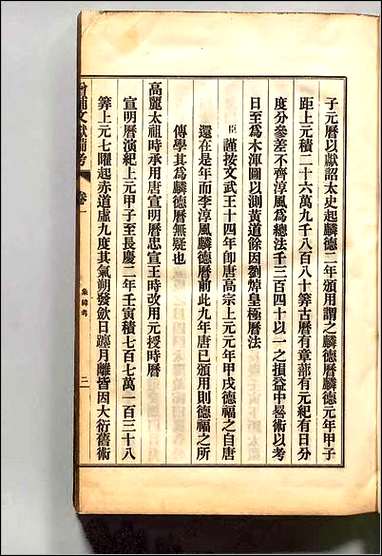 子元曆以獻詔太史起麟德二年頒用謂之麟德曆麟德元年甲子
距上元積二十六萬九千八百八十筭古曆有章蔀有元紀有日分
度分參差不齊淳風爲總法千三百四十以一之損益中晷術以考
日至爲木渾圖以測黃道餘因劉焯皇極曆法
臣謹按文武王十四年卽唐高宗上元元年甲戌德福之自唐
還在是年而李淳風麟德曆前此九年唐已頒用則德福之所
傳學其爲麟德曆無疑也
高麗太祖時承用唐宣明曆忠宣王時改用元授時曆
宣明曆演紀上元甲子至長慶二年壬寅積七百七萬一百三十八
筭上元七曜起赤道虛九度其氣朔發歛日躔月離皆因大衍舊術
增補文獻備考 卷一 象緯考 二